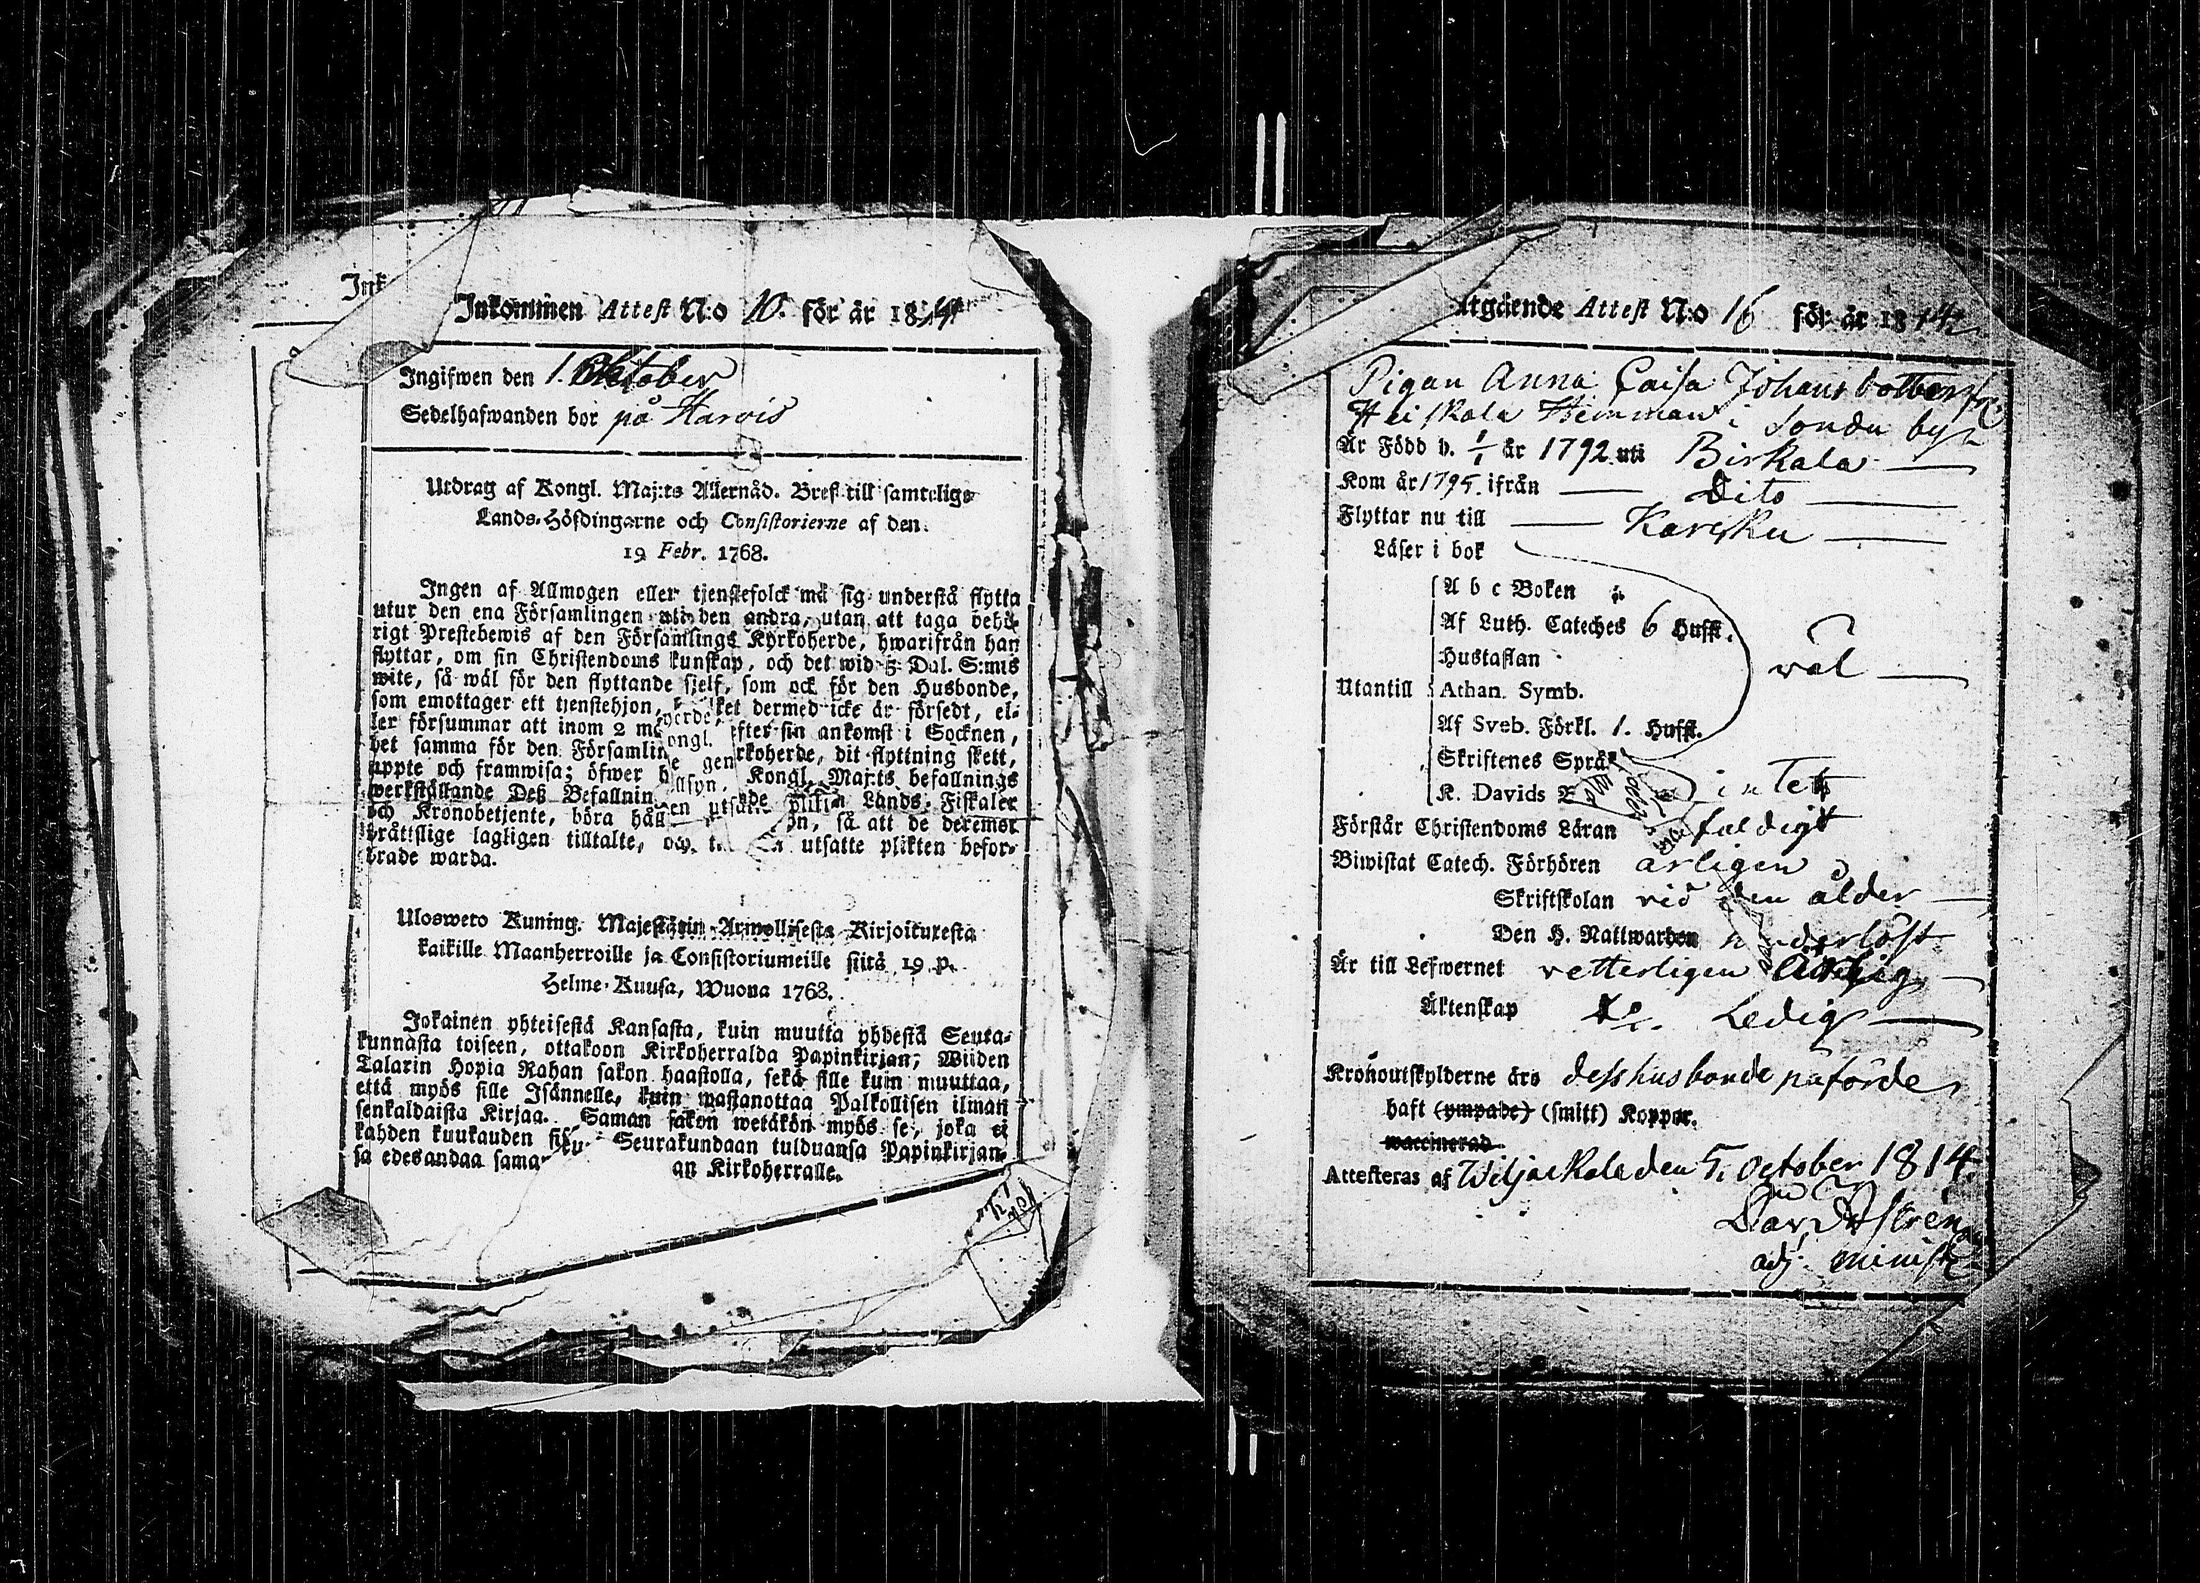 Ink
Inkommen Attest N:o 10. för år 1814
Ingifwen den 1. Oktober
Sedelhafwanden bor på Harvis
Utdrag af Kongl. Maj:ts Allernåd. Bref till samtelige
Lands-Höfdingarne och Consistorierne af den
19 Febr. 1768.
Ingen af Allmogen eller tjenstefolck må sig understå flytta
utur den ena Församlingen uti den andra, utan att taga behö-
rigt Prestebewis af den Församlings Kyrkoherde, hwarifrån han
flyttar, om sin Christendoms kunskap, och det wid 5 Dal. S:mts
wite, så wäl för den flyttande sjelf, som ock för den Husbonde,
som emottager ett tjenstehjon, ket dermed icke är försedt, el-
ler försummar att inom 2 må efter sin ankomst i Socknen,
det samma för den Församlin rkoherde, dit flyttning skett,
uppte och framwisa; öfwer h Kongl. Maj:ts befallnings
werkställande Deß Befallnin Lands-Fiskaler
och Kronobetjente, böra hål on, så att de deremot
bråttslige lagligen tilltalte, och utsatte plikten befor-
drade warda.
Ulosweto Kuning. Majestätin Armollisesta Kirjoituxesta
kaikille Maanherroille ja Consistoriumeille siitä 19 p.
Helme-Kuusa, Wuona 1768.
Jokainen yhteisestä Kansasta, kuin muutta yhdestä Seura-
kunnasta toiseen, ottakoon Kirkoherralda Papinkirjan; Wiiden
Talarin Hopia Rahan sakon haastolla, sekä sille kuin muuttaa,
että myös sille Isännelle, kuin wastanottaa Palkollisen ilman
senkaldaista Kirjaa. Saman sakon wetäkön myös se, joka ei
kahden kuukauden Seurakundaan tulduansa Papinkirjan-
sa edesandaa sama an Kirkoherralle.
tgående Attest N:o 16 för år 1814
Pigan Anna Caisa Johansdotter fr.
Heiskala Hemman i Sondu by
Är Född d. 1/1 år 1792 uti Birkala
Kom år 1795. ifrån Dito
Flyttar nu till Karsku
Läser i bok
A b c Boken
Af Luth. Cateches 6 Hufst.
Hustaflan
väl
Utantill Athan. Symb.
Af Sveb. Förkl. 1. Hufst.
Skriftenes Språk
K. Davids intet
Förstår Christendoms Läran faldigt
Biwistat Catech. Förhören årligen
Skriftskolan vid den ålder
Den H. Nattwarden
Är till Lefwernet vetterligen ärlig
Äktenskap Ledig
Kronoutskylderne äro desshusbonde påförde
haft (ympade) (smitt) Koppor.
waccinerad
Attesteras af Wiljackala den 5. October 1814.
adj. minist